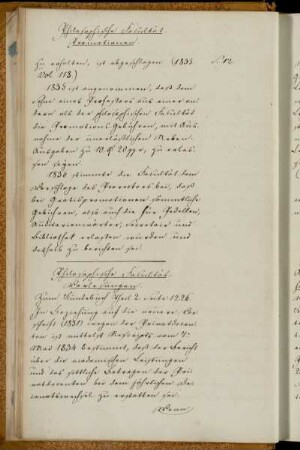 Philosophische Facultät
Promotionen
zu erhalten, ist abgeschlagen (1833
Vol. 118.)
1835 ist angenommen, daß dem
Sohne eines Professors aus einer an
dern als der philosophischen Facultät
die Promotions Gebühren, mit Aus
nahme der unerläßlichen Neben
Ausgaben zu 10 20 zu erlas
sen seyen.
1836 stimmte die Facultät dem
Vorschlage des Prorectors bei, daß
bei Gratispromotionen sämmtliche
Gebühren, also auch die für Pedellen,
Secretair und
Bibliothek erlassen würden und
deshalb zu berichten sei
Philosophische Facultät
Vorlesungen.
Zum Theil 2. Seite 1226.
In Beziehung auf die neuere Vor
schrift (1831) wegen der Privatdocen
ten ist mittelst Rescripts vom 7.
Mai 1834 bestimmt, daß der Bericht
über die academischen Leistungen
und das sittliche Betragen der Pri
vatdocenten bei dem jährlichen De
canatswechsel zu erstatten sei.